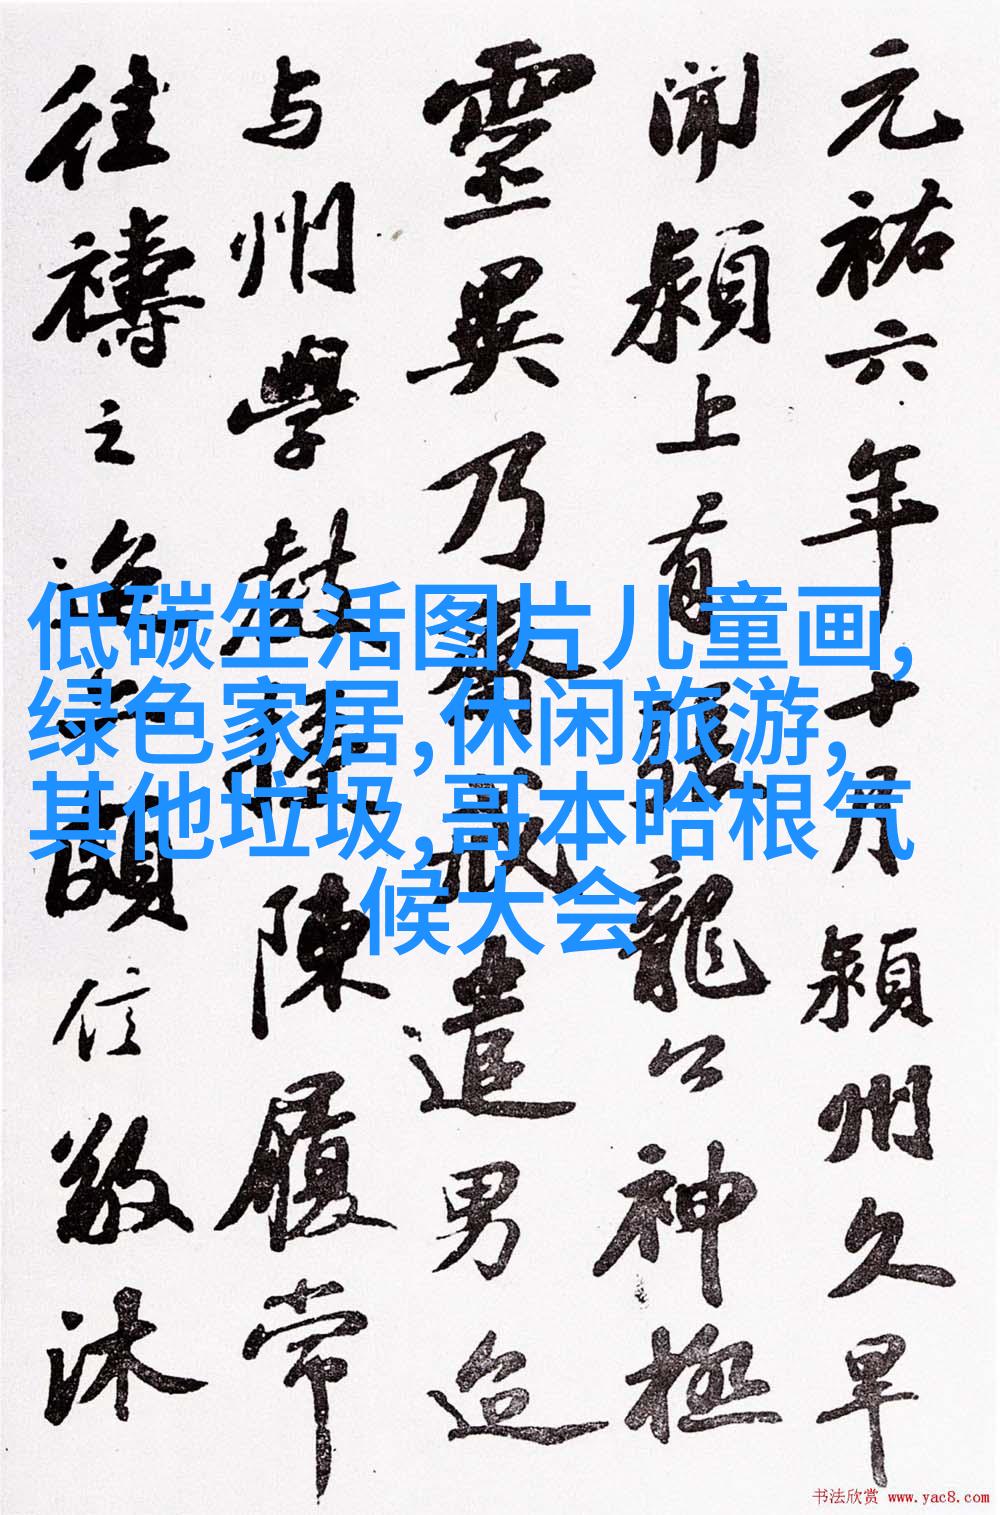 元祐六年十月潁州久旱
聞潁上有張龍公神極
靈異乃齋戒遣男迨
与州學教授陳履常
往禱之迨亦頗信敬沐
低碳生活图片儿童画,
绿色家居,休闲旅游,
其他垃圾,哥本哈根气
候大会
书法欣赏 www.yac8.com